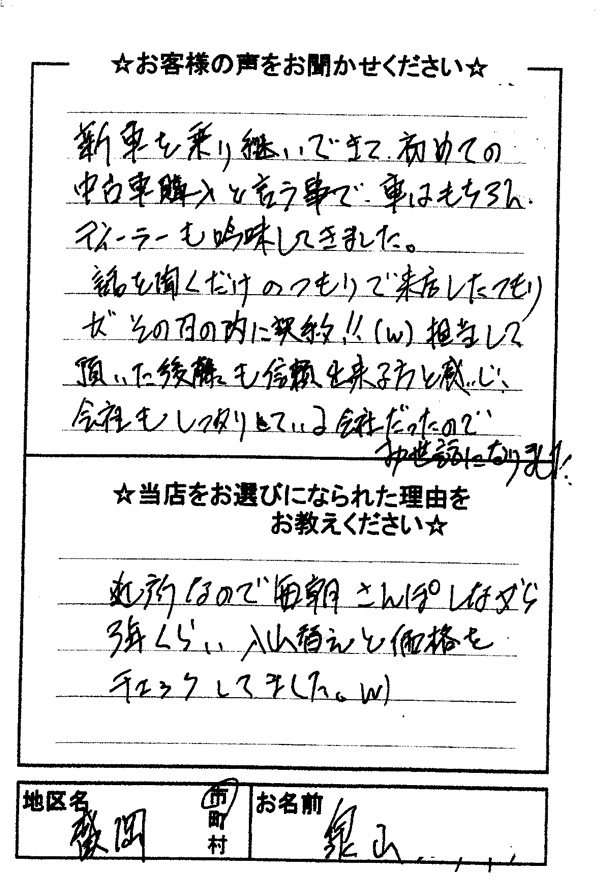 ☆お客様の声をお聞かせください☆
新車を乗り継いできて、初めての
中古車購入と言う事で、車はもちろん、
ディーラーも吟味してきました。
話を聞くだけのつもりで来店したつもり
が その日の内に契約!!(w) 担当して
頂いた後藤も信頼出来る方と感じ、
会社もしっかりしている会社だったので
お世話になりました。
☆当店をお選びになられた理由を
お教えください☆
近所なので毎朝さんぽしながら
3年くらい、入れ替えと価格を
チェックしてました。w)
地区名
盛岡
市
町
村
お名前
泉山